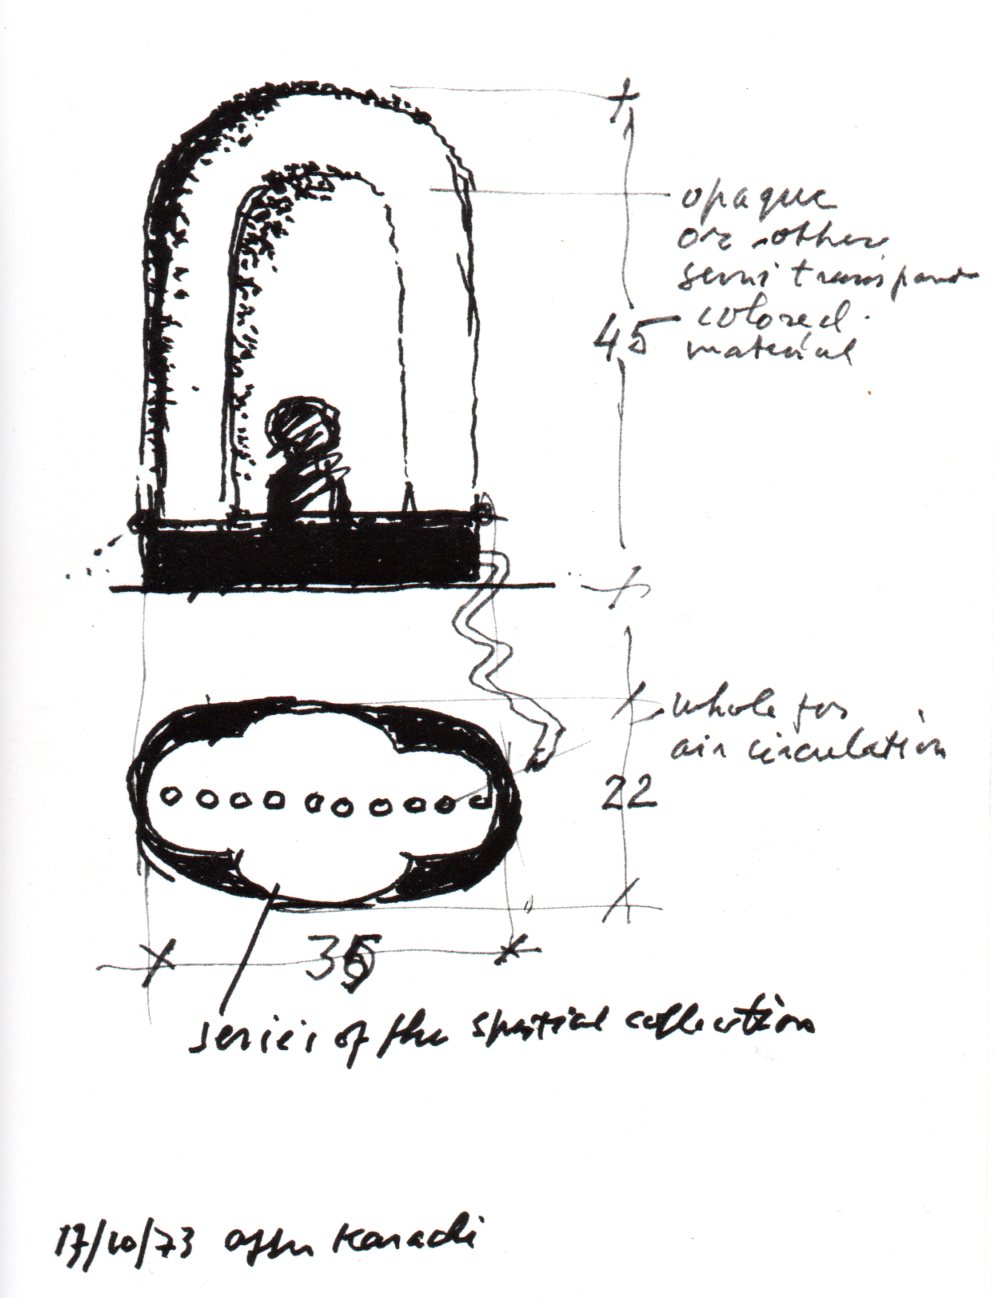 opaque
or other
semi transparent
colored
material
45
whole for
air circulation
22
35
series of the spatial collection
17/10/73 after Karachi